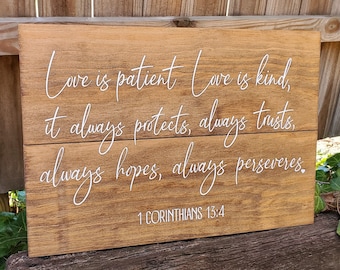 Love is patient Love is kind,
it always protects, always trusts,
always hopes, always perseveres.
1 CORINTHIANS 13:4